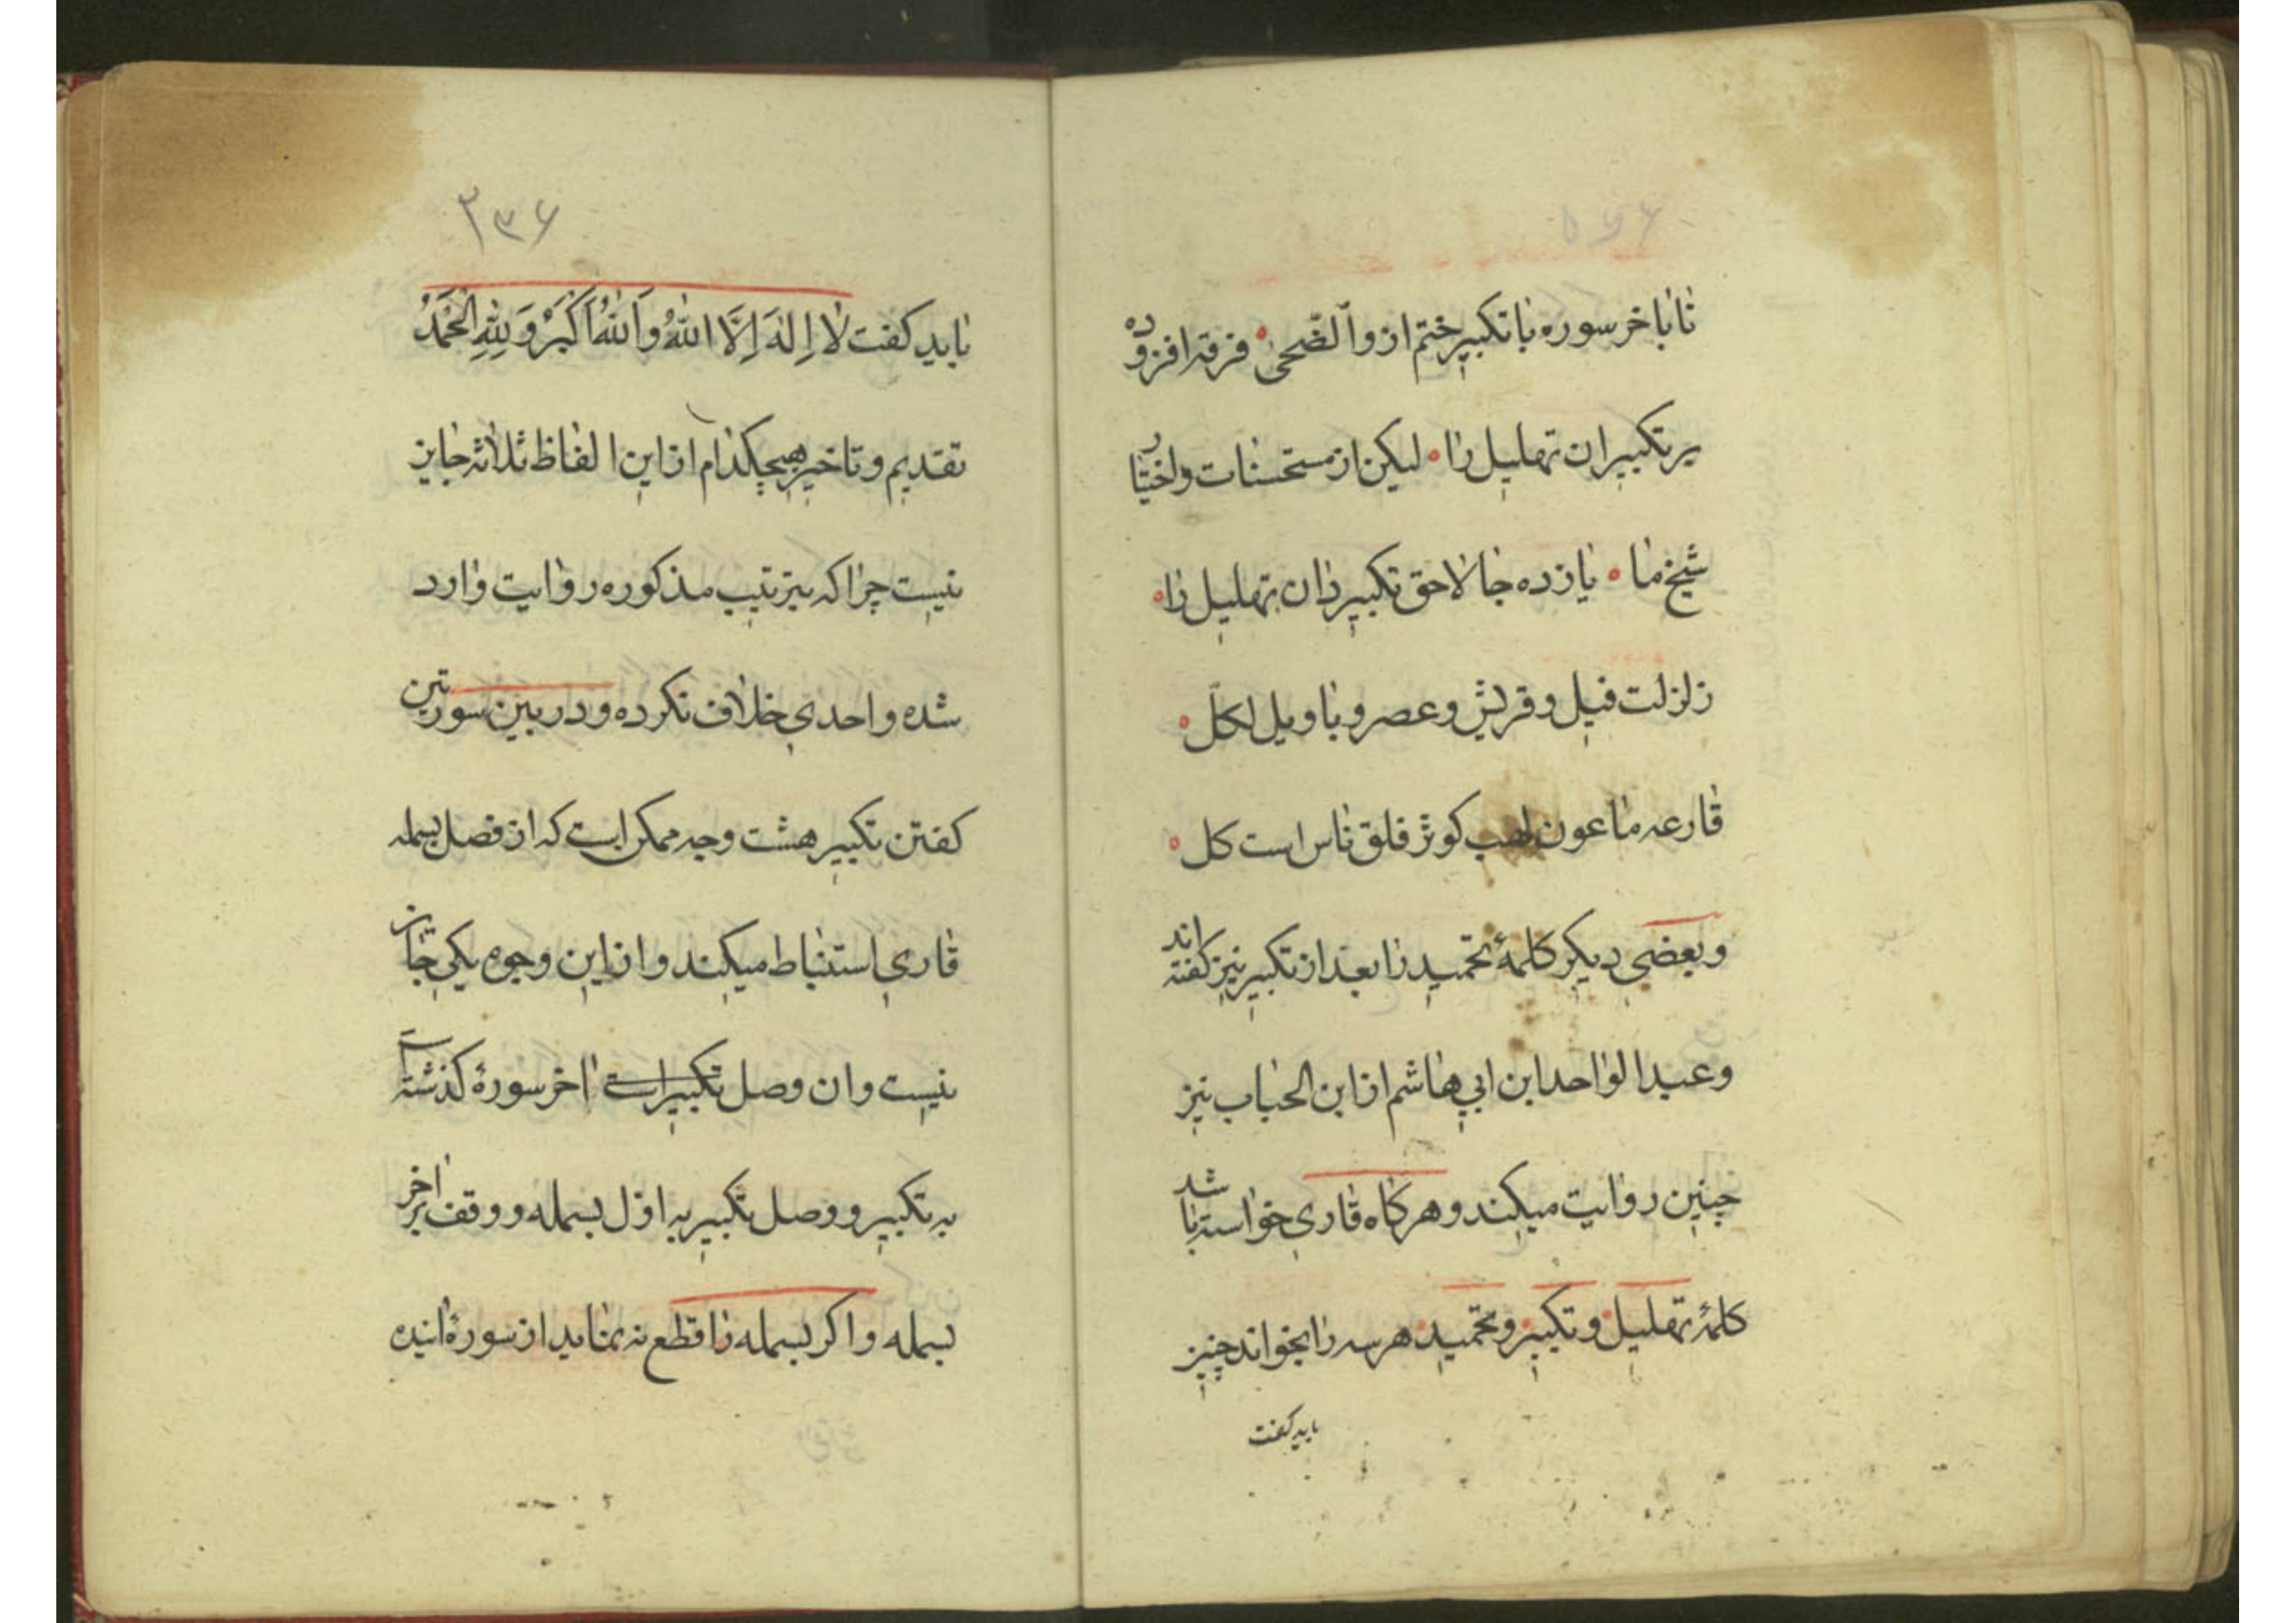 تا باخر سوره با تکبیر ختم از والضّحیٰ فرقه افزوده
بر تکبیران تهلیل را لیکن از مستحسنات واختیار
شیخ ما یازده جا لاحق تکبیر دان تهلیل را
زلزلت فیل و قریش و عصر و با ویل لکلّ
قارعه ماعون لهب کوثر فلق ناس است کل
و بعضی دیکر کلمهٔ تحمید را بعد از تکبیر نیز کفته اند
و عبد الواحد ابن ابی هاشم از ابن الحباب نیز
چنین روایت میکند و هرکاه قاری خواسته باشد
کلمهٔ تهلیل و تکبیر و تحمید هر سه را بخواند چنین
باید کفت
۲۳۶
باید کفت لا اِلهَ اِلَّا اللهُ واَللهُ اَکْبَرُ وَ لِلّٰهِ الْحَمْدُ
تقدیم و تاخیر هیچکدام از این الفاظ ثلاثه جایز
نیست چرا که بترتیب مذکوره روایت وارد
شده واحدی خلاف نکرده و در بین سورتین
کفتن تکبیر هشت وجه ممکن است که از فصل بسمله
قاری استنباط میکند و از این وجوه یکی جایز
نیست و ان وصل تکبیر است اخر سورهٔ کذشته است
به تکبیر و وصل تکبیر به اوّل بسمله و وقف بر اخر
بسمله و اکر بسمله را قطع نه نماید از سورهٔ اینده